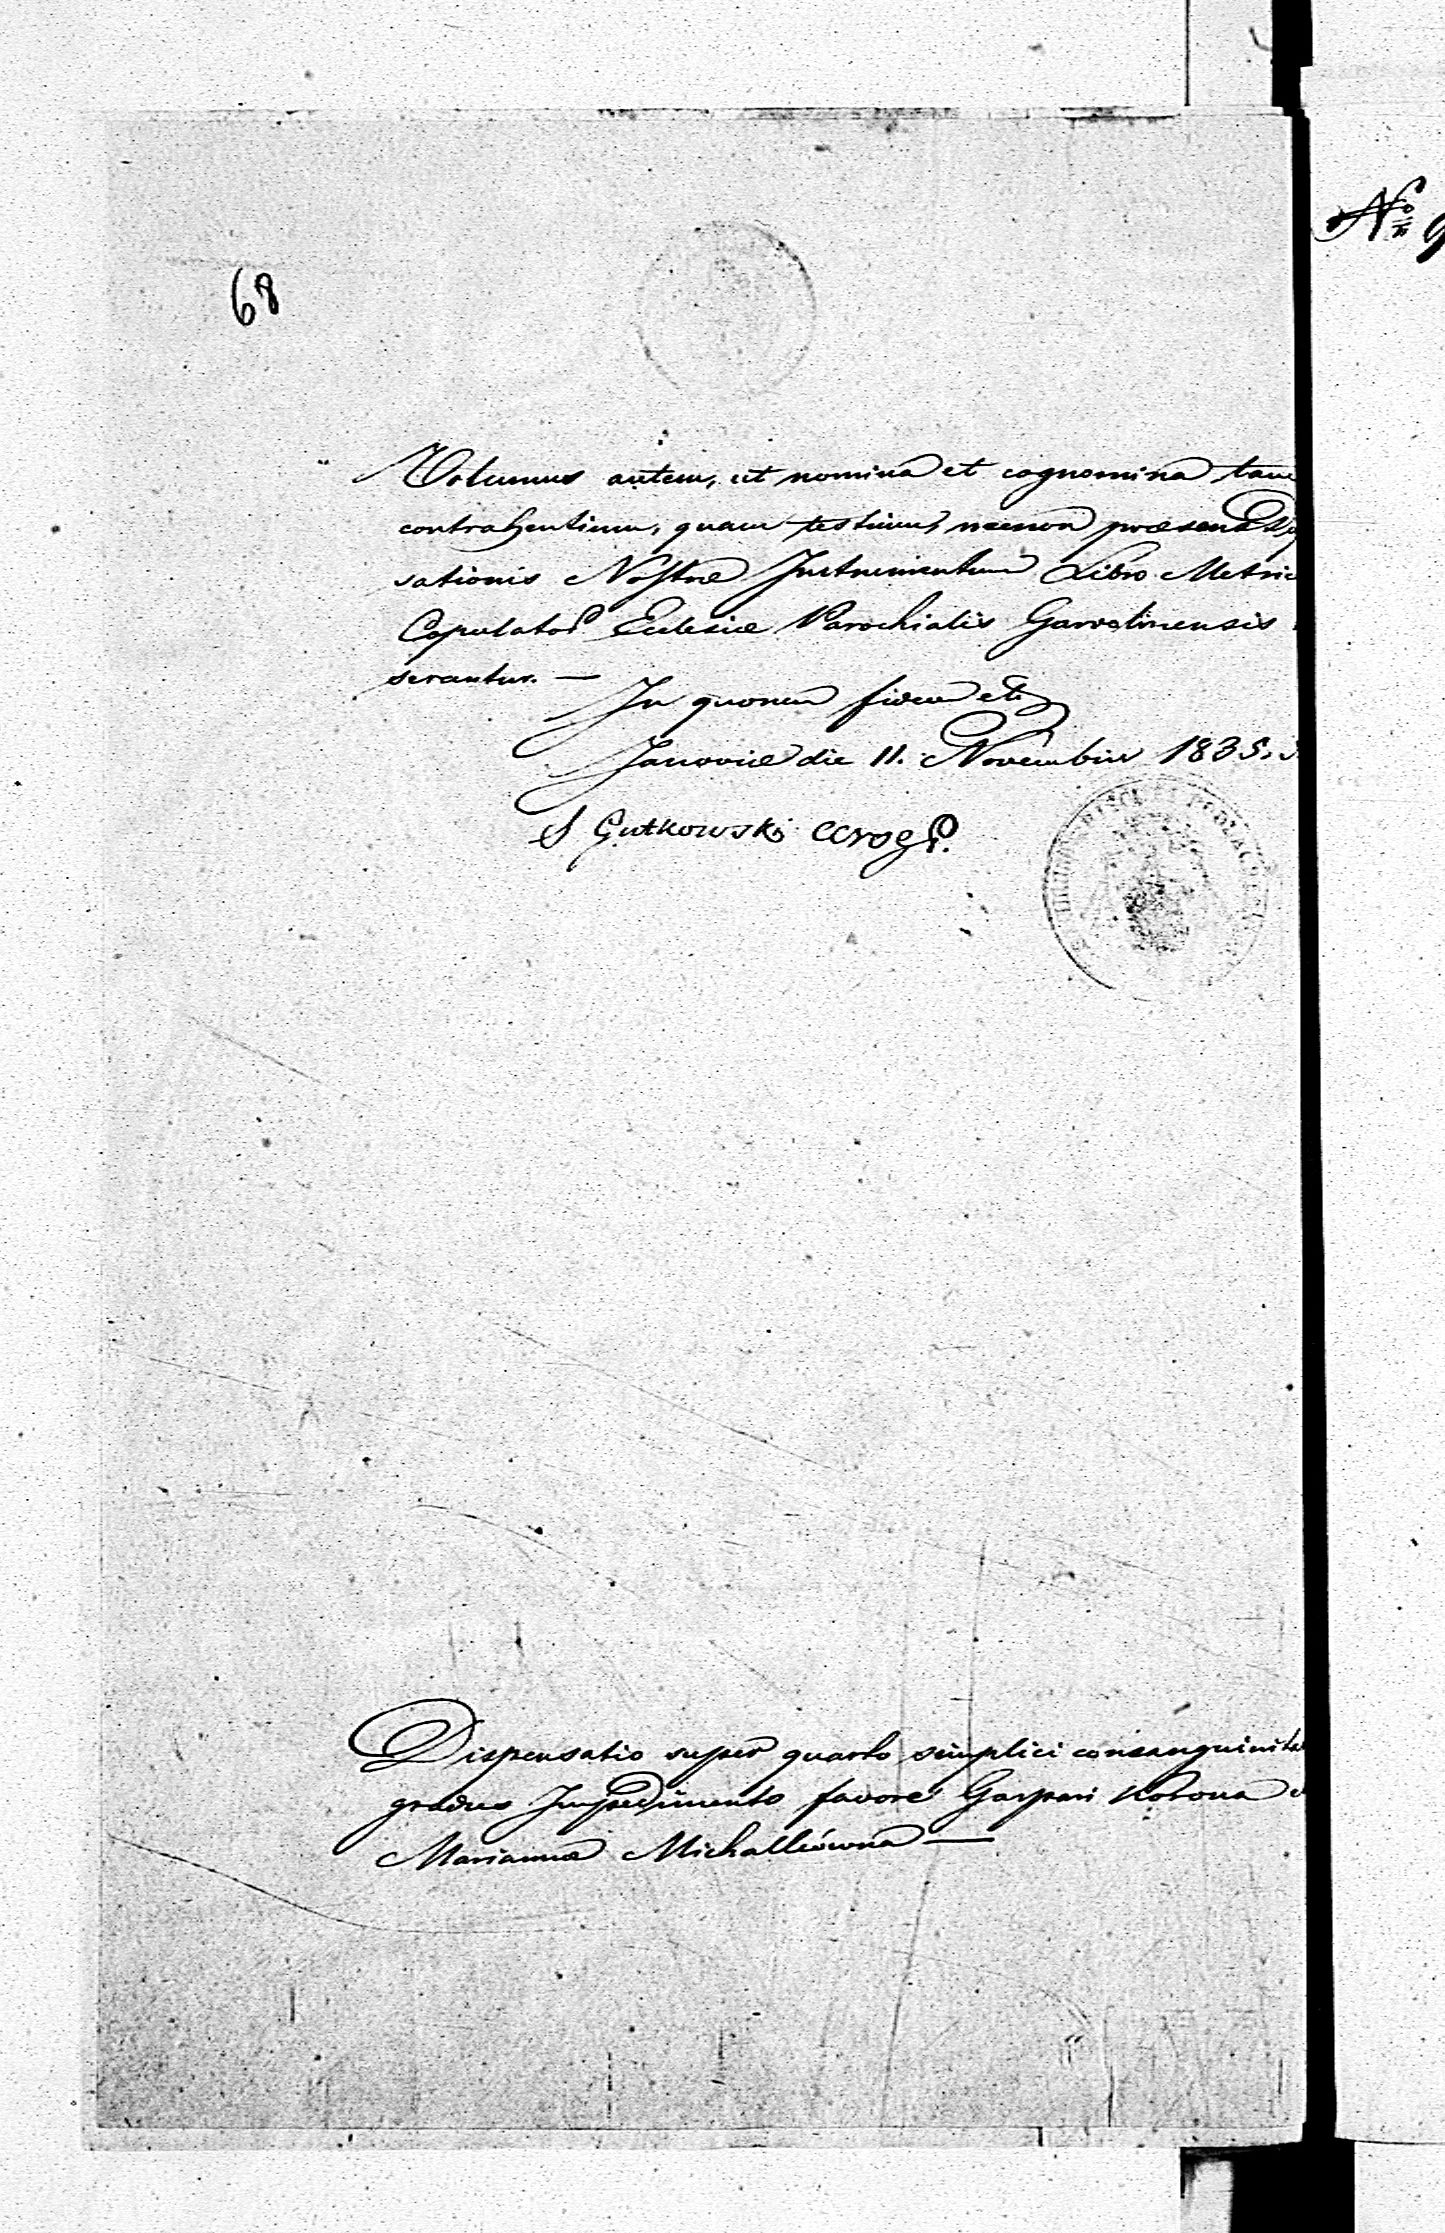 68
Volumus autem, ut nomina et cognomina tam
contrahentium, quam testium, necnon præsens Disp
sationis Nostræ Instrumentum Libro Metric
Copulator Eclesiæ Parochialis Garvolinensis
serantur. —
In quorum fidem etc
Janoviæ die 11. Novembris 1835.
Gutkowski
Dispensatio super quarto simplici consanguinita
gradus Impedimento favore Gaspari Kotowa
Mariannæ Michalkówna —
Nº 9